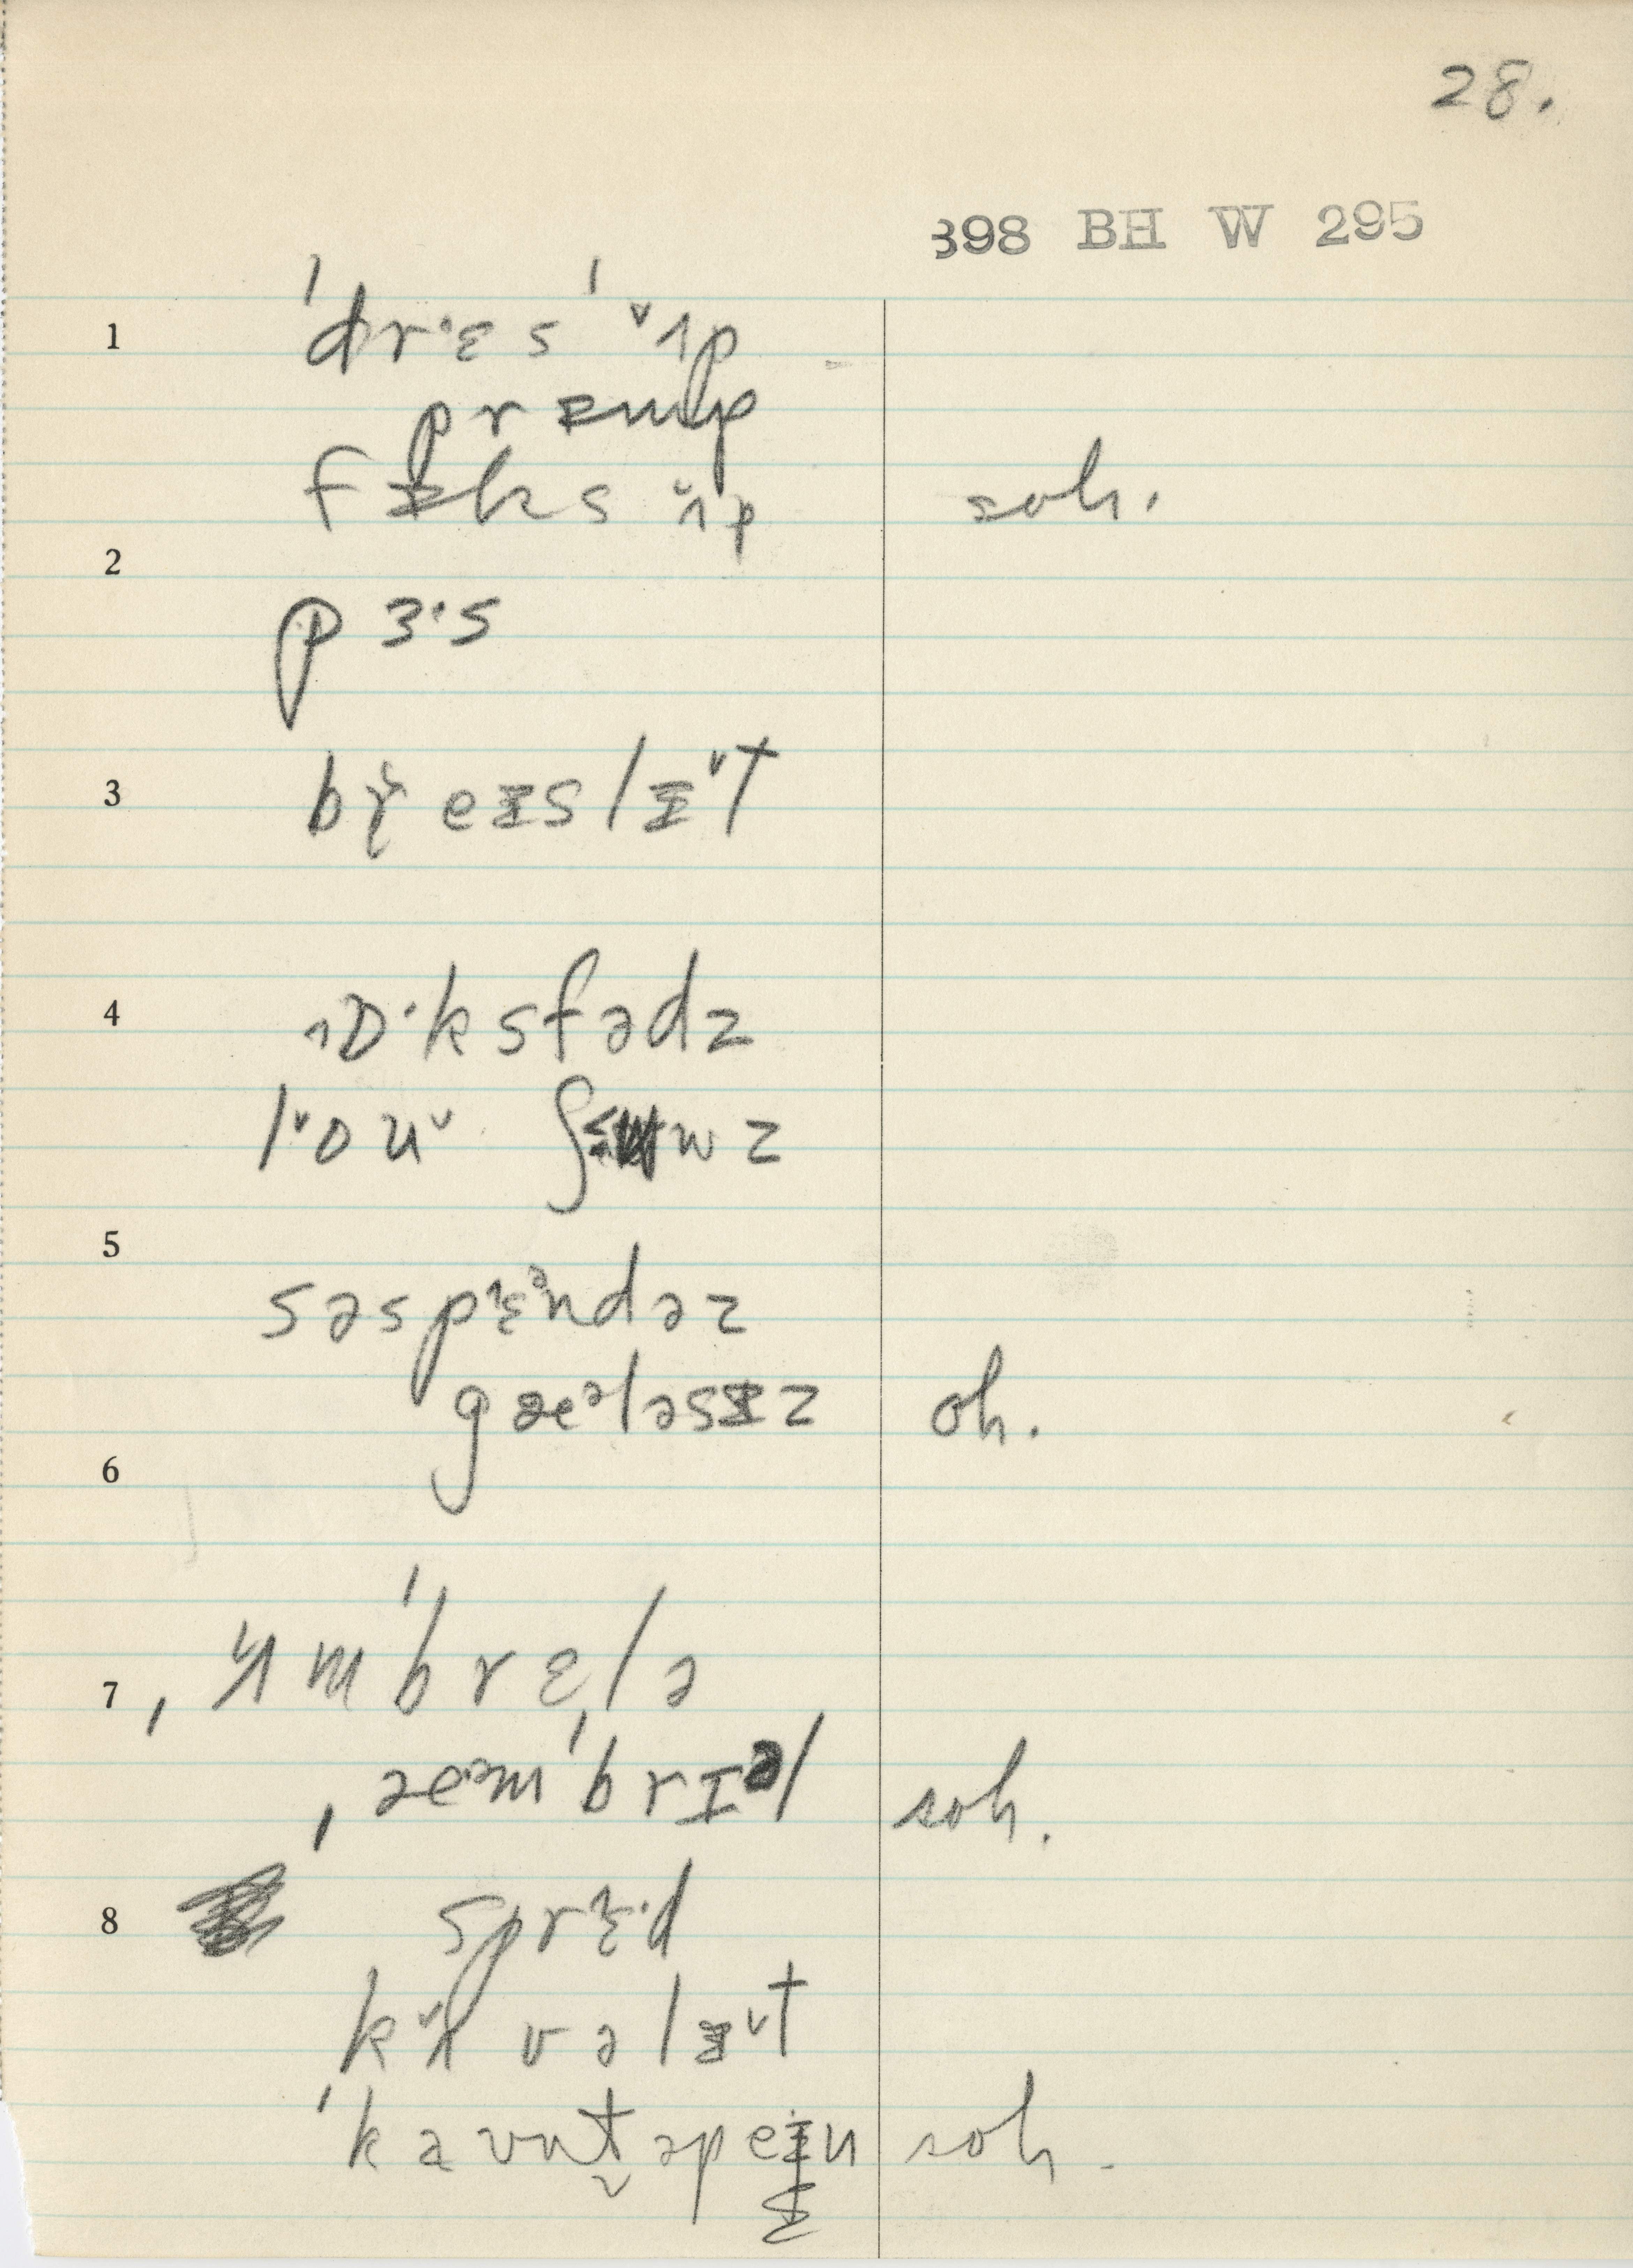 28.
398 BH W 295
1 ˈdrˑɛsˈ ˇʌp
prɪmp
fɪks ˇʌp soh.
2
pɜˑs
3 breɪslɪˇt
4 ɒˑksfədz
lˇouˇ ʃ wz
5
səspɛᵊndəz
gæᵊləsɪz oh.
6
7 ˌʌmˈbrɛlə
ˌæᵊmˈbrɪᵊl soh.
8 sprɛˑd
kʌvəlɪˇt
ˈkaʊntəpeɪn soh.